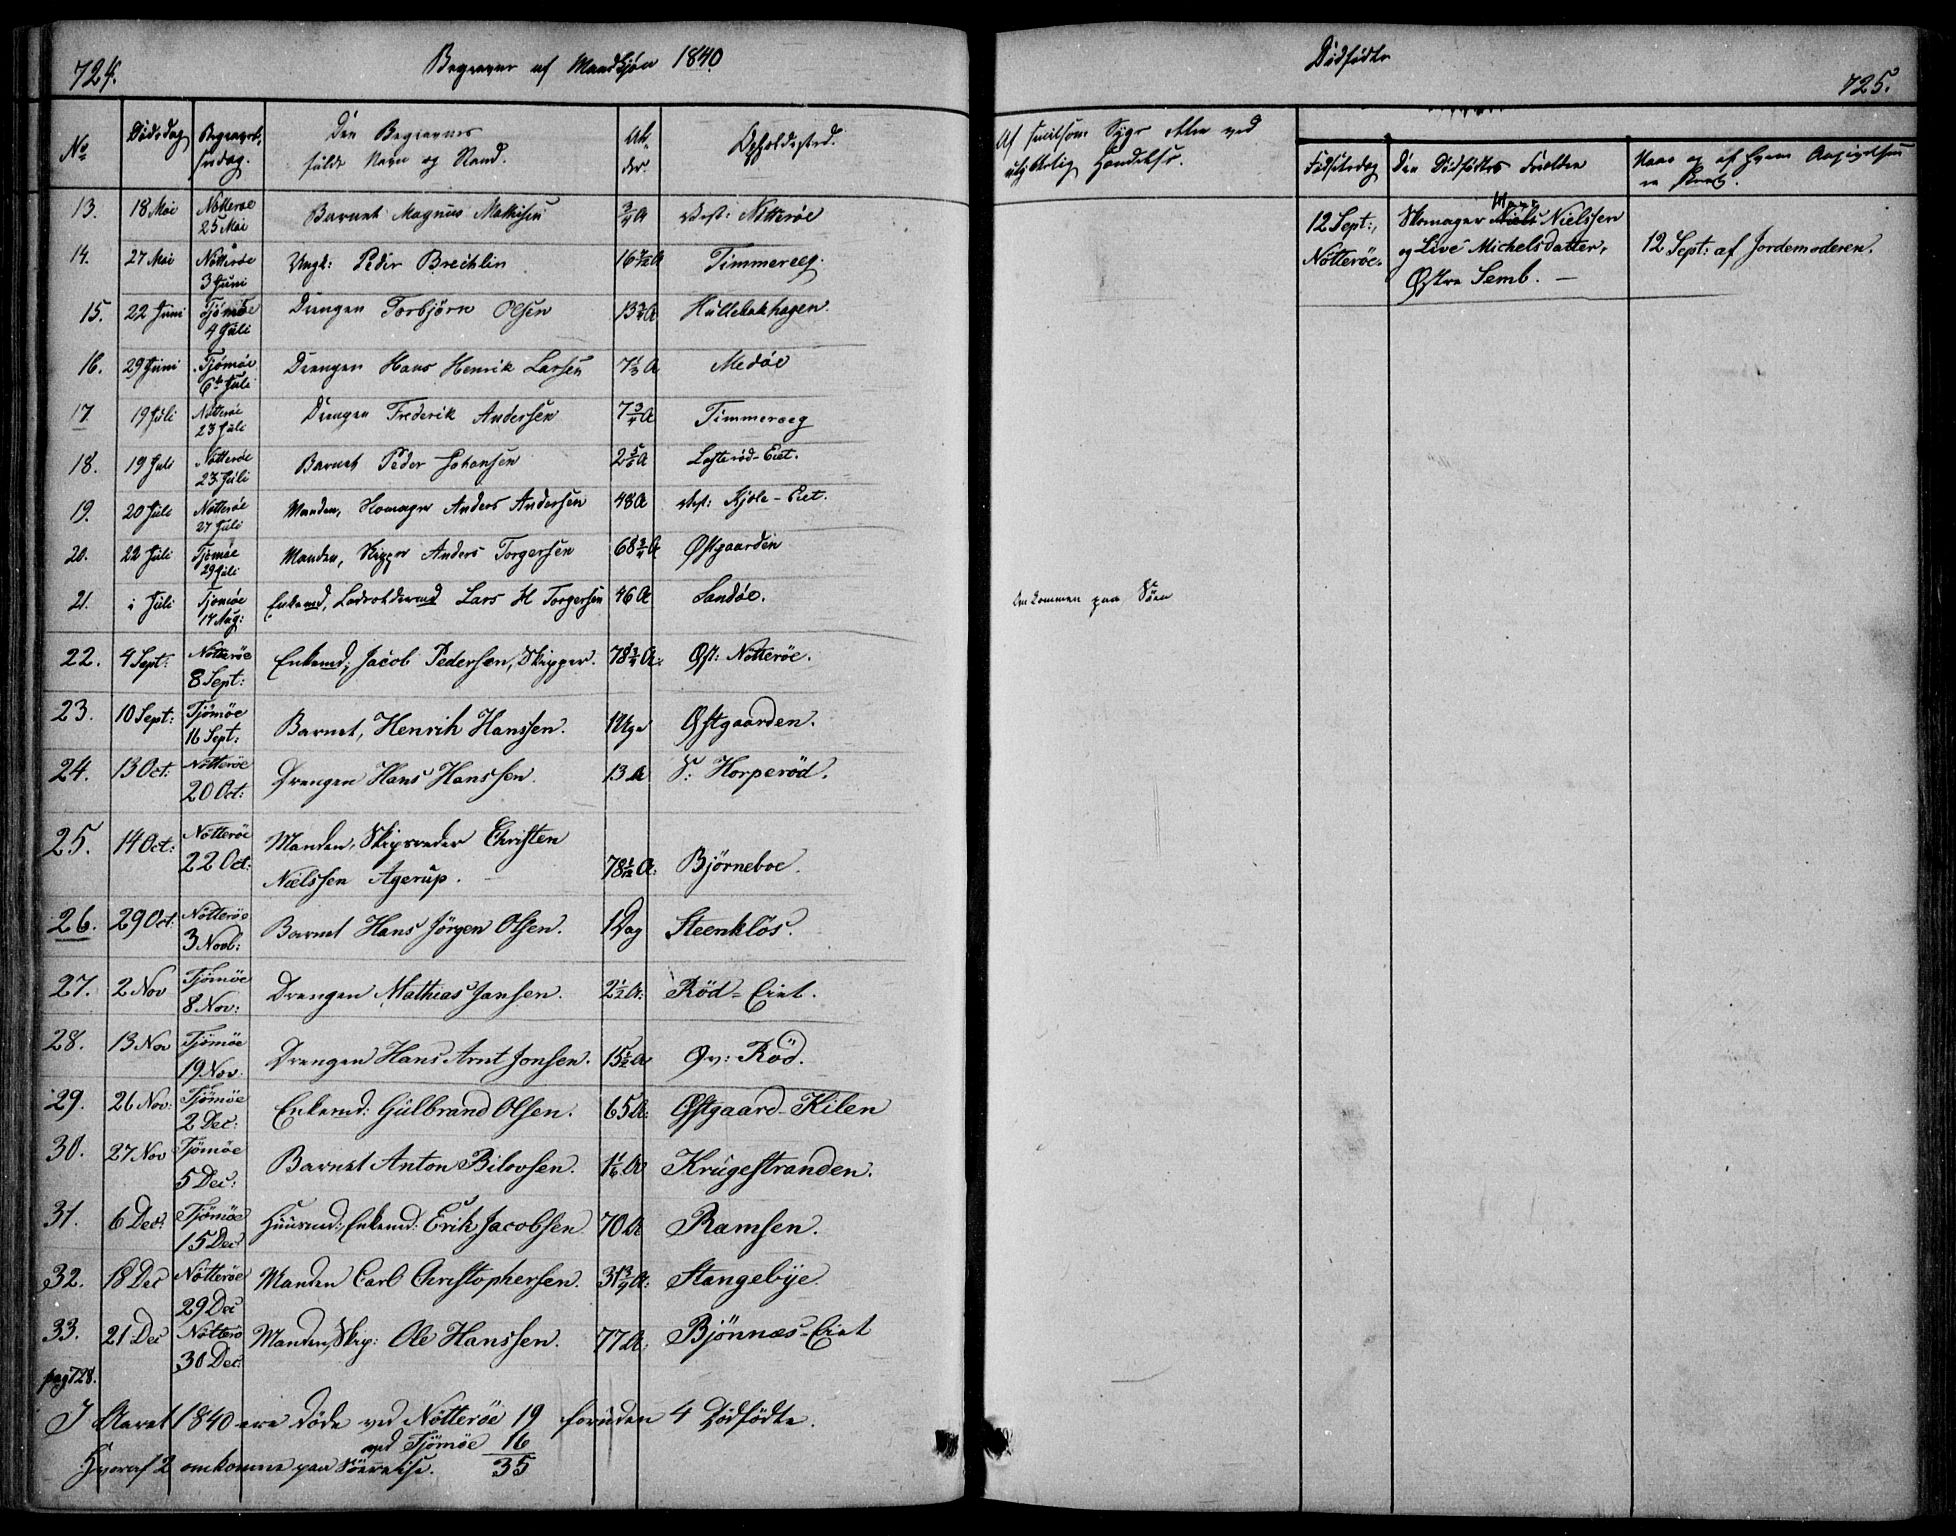 724.
Begravne af Mandkjøn 1840.
No
Dødsdag
Begravel-
sesdag.
Den Begravnes
fulde Navn og Stand.
Al-
der.
Opholdssted.
13. 18 Mai Nötteröe 25 Mai Barnet Magnus Mathisen 3/4 A Vest: Nötteröe
14. 27 Mai Nötteröe 3 Juni Ungk: Peder Brechlin 16 A Timmereeg.
15. 22 Juni Tjömöe 4 Juli Drengen Torbjörn Olsen 13 3/4 A Hüllebakhagen.
16. 29 Juni Tjömöe 6te Juli Drengen Hans Henrik Larsen 7 1/3 A Medöe
17 19 Juli Nötteröe 23 Juli Drengen Frederik Andersen 7 3/4 A Timmereeg
18. 19 Juli Nötteröe 23 Juli Barnet Peder Johansen 2 5/6 A Lofterød-Eiet.
19. 20 Juli Nötteröe 27 Juli Manden, Anders Andersen 48 A Vest: Kjöle-Eiet.
20. 22 Juli Tjömöe 29 Juli Manden, Skipper Anders Torgersen 68 3/4 A Østgaarden
21. i Juli Tjömöe 17 Aug: Enkemd, Lars H Torgersen 46 A Sandöe.
22. 4 Sept: Nötteröe 8 Sept: Enkemd; Jacob Pedersen, Skipper. 78 3/4 A: Øst: Nötteröe.
23. 10 Sept: Tjömöe 16 Sept: Barnet, Henrik Hanssen. 1 Uge Østgaarden.
24. 13 Oct: Nötteröe 20 Oct: Drengen Hans Hanssen. 13 A S: Horperöd.
25. 14 Oct: Nötteröe 22 Oct: Manden, Skipsreder Christen
Nielssen Agerup. 78 1/12 A: Bjørneboe.
26. 29 Oct: Nötteröe 3 Novb: Barnet Hans Jörgen Olsen. 1 Dag Steenklös.
27. 2 Nov Tjömöe 8 Nov: Drengen Mathias Jansen. 2 1/2 A: Röd-Eiet.
28. 13 Nov Tjömöe 19 Nov. Drengen Hans Arnt Jonsen. 15 1/2 A Øv: Röd.
29. 26 Nov: Tjömöe 2 Dec: Enkemd: Gülbrand Olsen. 65 A: Østgaard-Kilen
30. 27 Nov Tjömöe 5 Dec: Barnet Anton Bilovsen. 1 1/6 A Krügestranden.
31. 6 Dec: Tjömöe 15 Dec: Huusmd: Enkemd: Erik Jacobsen 70 A Ramsen.
32. 18 Dec Nötteröe 29 Dec Manden Carl Christophersen. 31 3/4 A: Stangebÿe.
33. 21 Dec Nötterö 30 Dec: Manden, Skip: Ole Hanssen. 77 A: Bjönnæs-Eiet
pag 728.
I Aaret 1840 ere døde ved Nötteröe 19 foruden 4 Dødfödte.
ved Tjömöe 16
Hvoraf 2 omkomne paa Söereise. 35
Dödfødte
725.
Af hvilken Syge eller ved
ulykkelig Hændelse.
Fødselsdag
Den Dødfødtes Forældre
Naar og af hvem Angivelsen
er skeet.
12 Sept:,
Nötteröe.
Hans
Skomager Niels Nielssen
og Live Michelsdatter,
Østre Semb. —
12 Sept: af Jordemoderen.
Omkommen paa Söen